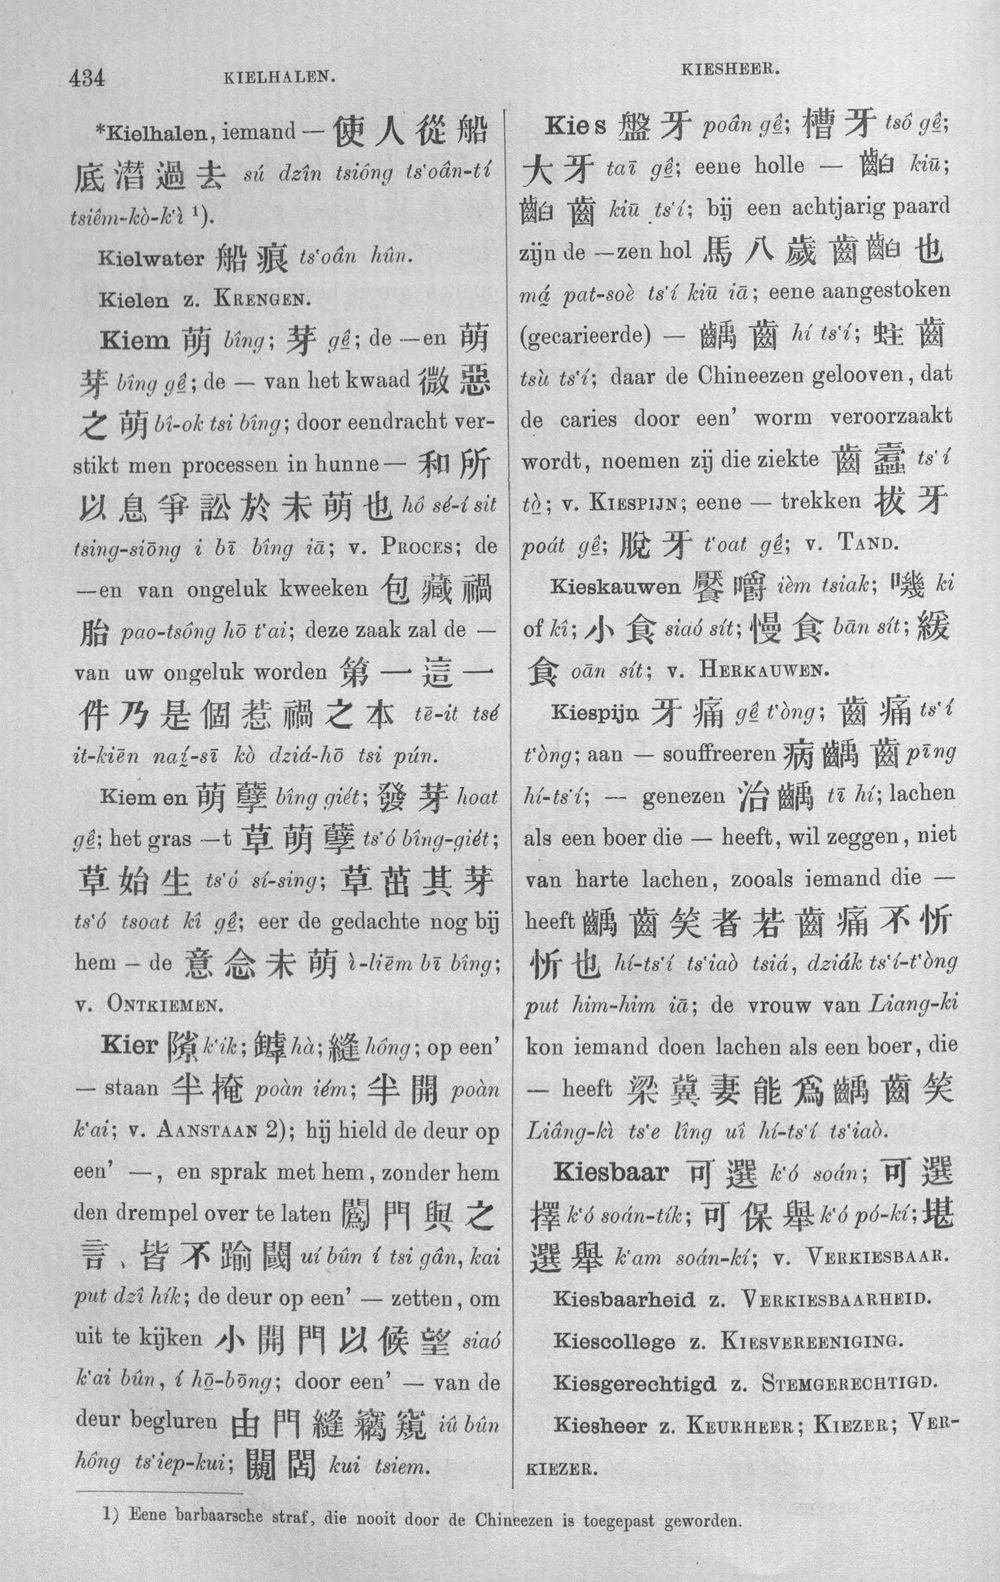 434
KIELHALEN.
KIESHEER.
*Kielhalen, iemand — 使人從船
底潛過去 sú dzîn tsiông ts‘oân-tí
tsiêm-kò-k‘ì ¹).
Kielwater 船痕 ts‘oân hûn.
Kielen z. KRENGEN.
Kiem 萌 bîng; 芽 gê; de —en 萌
芽 bîng gê; de — van het kwaad 微惡
之萌 bî-ok tsi bîng; door eendracht ver-
stikt men processen in hunne — 和所
以息爭訟於未萌也 hô sé-í sit
tsing-siōng i bī bîng iā; v. PROCES; de
—en van ongeluk kweeken 包藏禍
胎 pao-tsông hō t‘ai; deze zaak zal de —
van uw ongeluk worden 第一這一
件乃是個惹禍之本 tē-it tsé
it-kiēn naí-sī kò dziá-hō tsi pún.
Kiemen 萌孽 bîng giét; 發芽 hoat
gê; het gras —t 草萌孽 ts‘ó bîng-giét;
草始生 ts‘ó sí-sing; 草茁其芽
ts‘ó tsoat kî gê; eer de gedachte nog bij
hem — de 意念未萌 ì-liēm bī bîng;
v. ONTKIEMEN.
Kier 隙 k‘ik; 罅 hà; 縫 hông; op een’
— staan 半掩 poàn iém; 半開 poàn
k‘ai; v. AANSTAAN 2); hij hield de deur op
een’ —, en sprak met hem, zonder hem
den drempel over te laten 闖門與之
言、皆不踰閾 uí bûn í tsi gân, kai
put dzî hík; de deur op een’ — zetten, om
uit te kijken 小開門以候望 siaó
k‘ai bûn, í hō-bōng; door een’ — van de
deur begluren 由門縫竊窺 iû bûn
hông ts‘iep-kui; 闚閭 kui tsiem.
Kies 盤牙 poân gê; 槽牙 tsô gê;
大牙 taī gê; eene holle — 齨 kiū;
齨齒 kiū ts‘í; bij een achtjarig paard
zijn de —zen hol 馬八歲齒齨也
má pat-soè ts‘í kiū iā; eene aangestoken
(gecarieerde) — 齲齒 hí ts‘í; 蛀齒
tsù ts‘í; daar de Chineezen gelooven, dat
de caries door een’ worm veroorzaakt
wordt, noemen zij die ziekte 齒蠹 ts‘í
tò; v. KIESPIJN; eene — trekken 拔牙
poát gê; 脫牙 t‘oat gê; v. TAND.
Kieskauwen 饜嚼 ièm tsiak; 嘰 ki
of kî; 小食 siaó sít; 慢食 bān sít; 緩
食 oān sít; v. HERKAUWEN.
Kiespijn 牙痛 gê t‘òng; 齒痛 ts‘í
t‘òng; aan — souffreeren 病齲齒 pīng
hí-ts‘í; — genezen 治齲 tī hí; lachen
als een boer die — heeft, wil zeggen, niet
van harte lachen, zooals iemand die —
heeft 齲齒笑者若齒痛不忻
忻也 hí-ts‘í ts‘iaò tsiá, dziák ts‘í-t‘òng
put him-him iā; de vrouw van Liang-ki
kon iemand doen lachen als een boer, die
— heeft 梁冀妻能爲齲齒笑
Liâng-kì ts‘e lîng uî hí-ts‘í ts‘iaò.
Kiesbaar 可選 k‘ó soán; 可選
擇 k‘ó soán-tík; 可保舉 k‘ó pó-kí; 堪
選舉 k‘am soán-kí; v. VERKIESBAAR.
Kiesbaarheid z. VERKIESBAARHEID.
Kiescollege z. KIESVEREENIGING.
Kiesgerechtigd z. STEMGERECHTIGD.
Kiesheer z. KEURHEER; KIEZER; VER-
KIEZER.
1) Eene barbaarsche straf, die nooit door de Chineezen is toegepast geworden.